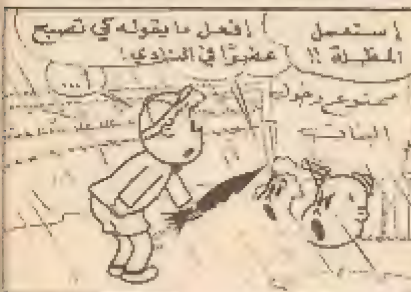 إستعمل
المظلة !!
إفعل ما يقوله كي تصبح
عضوًا في النادي!
...
ممنوع دخول
البنات